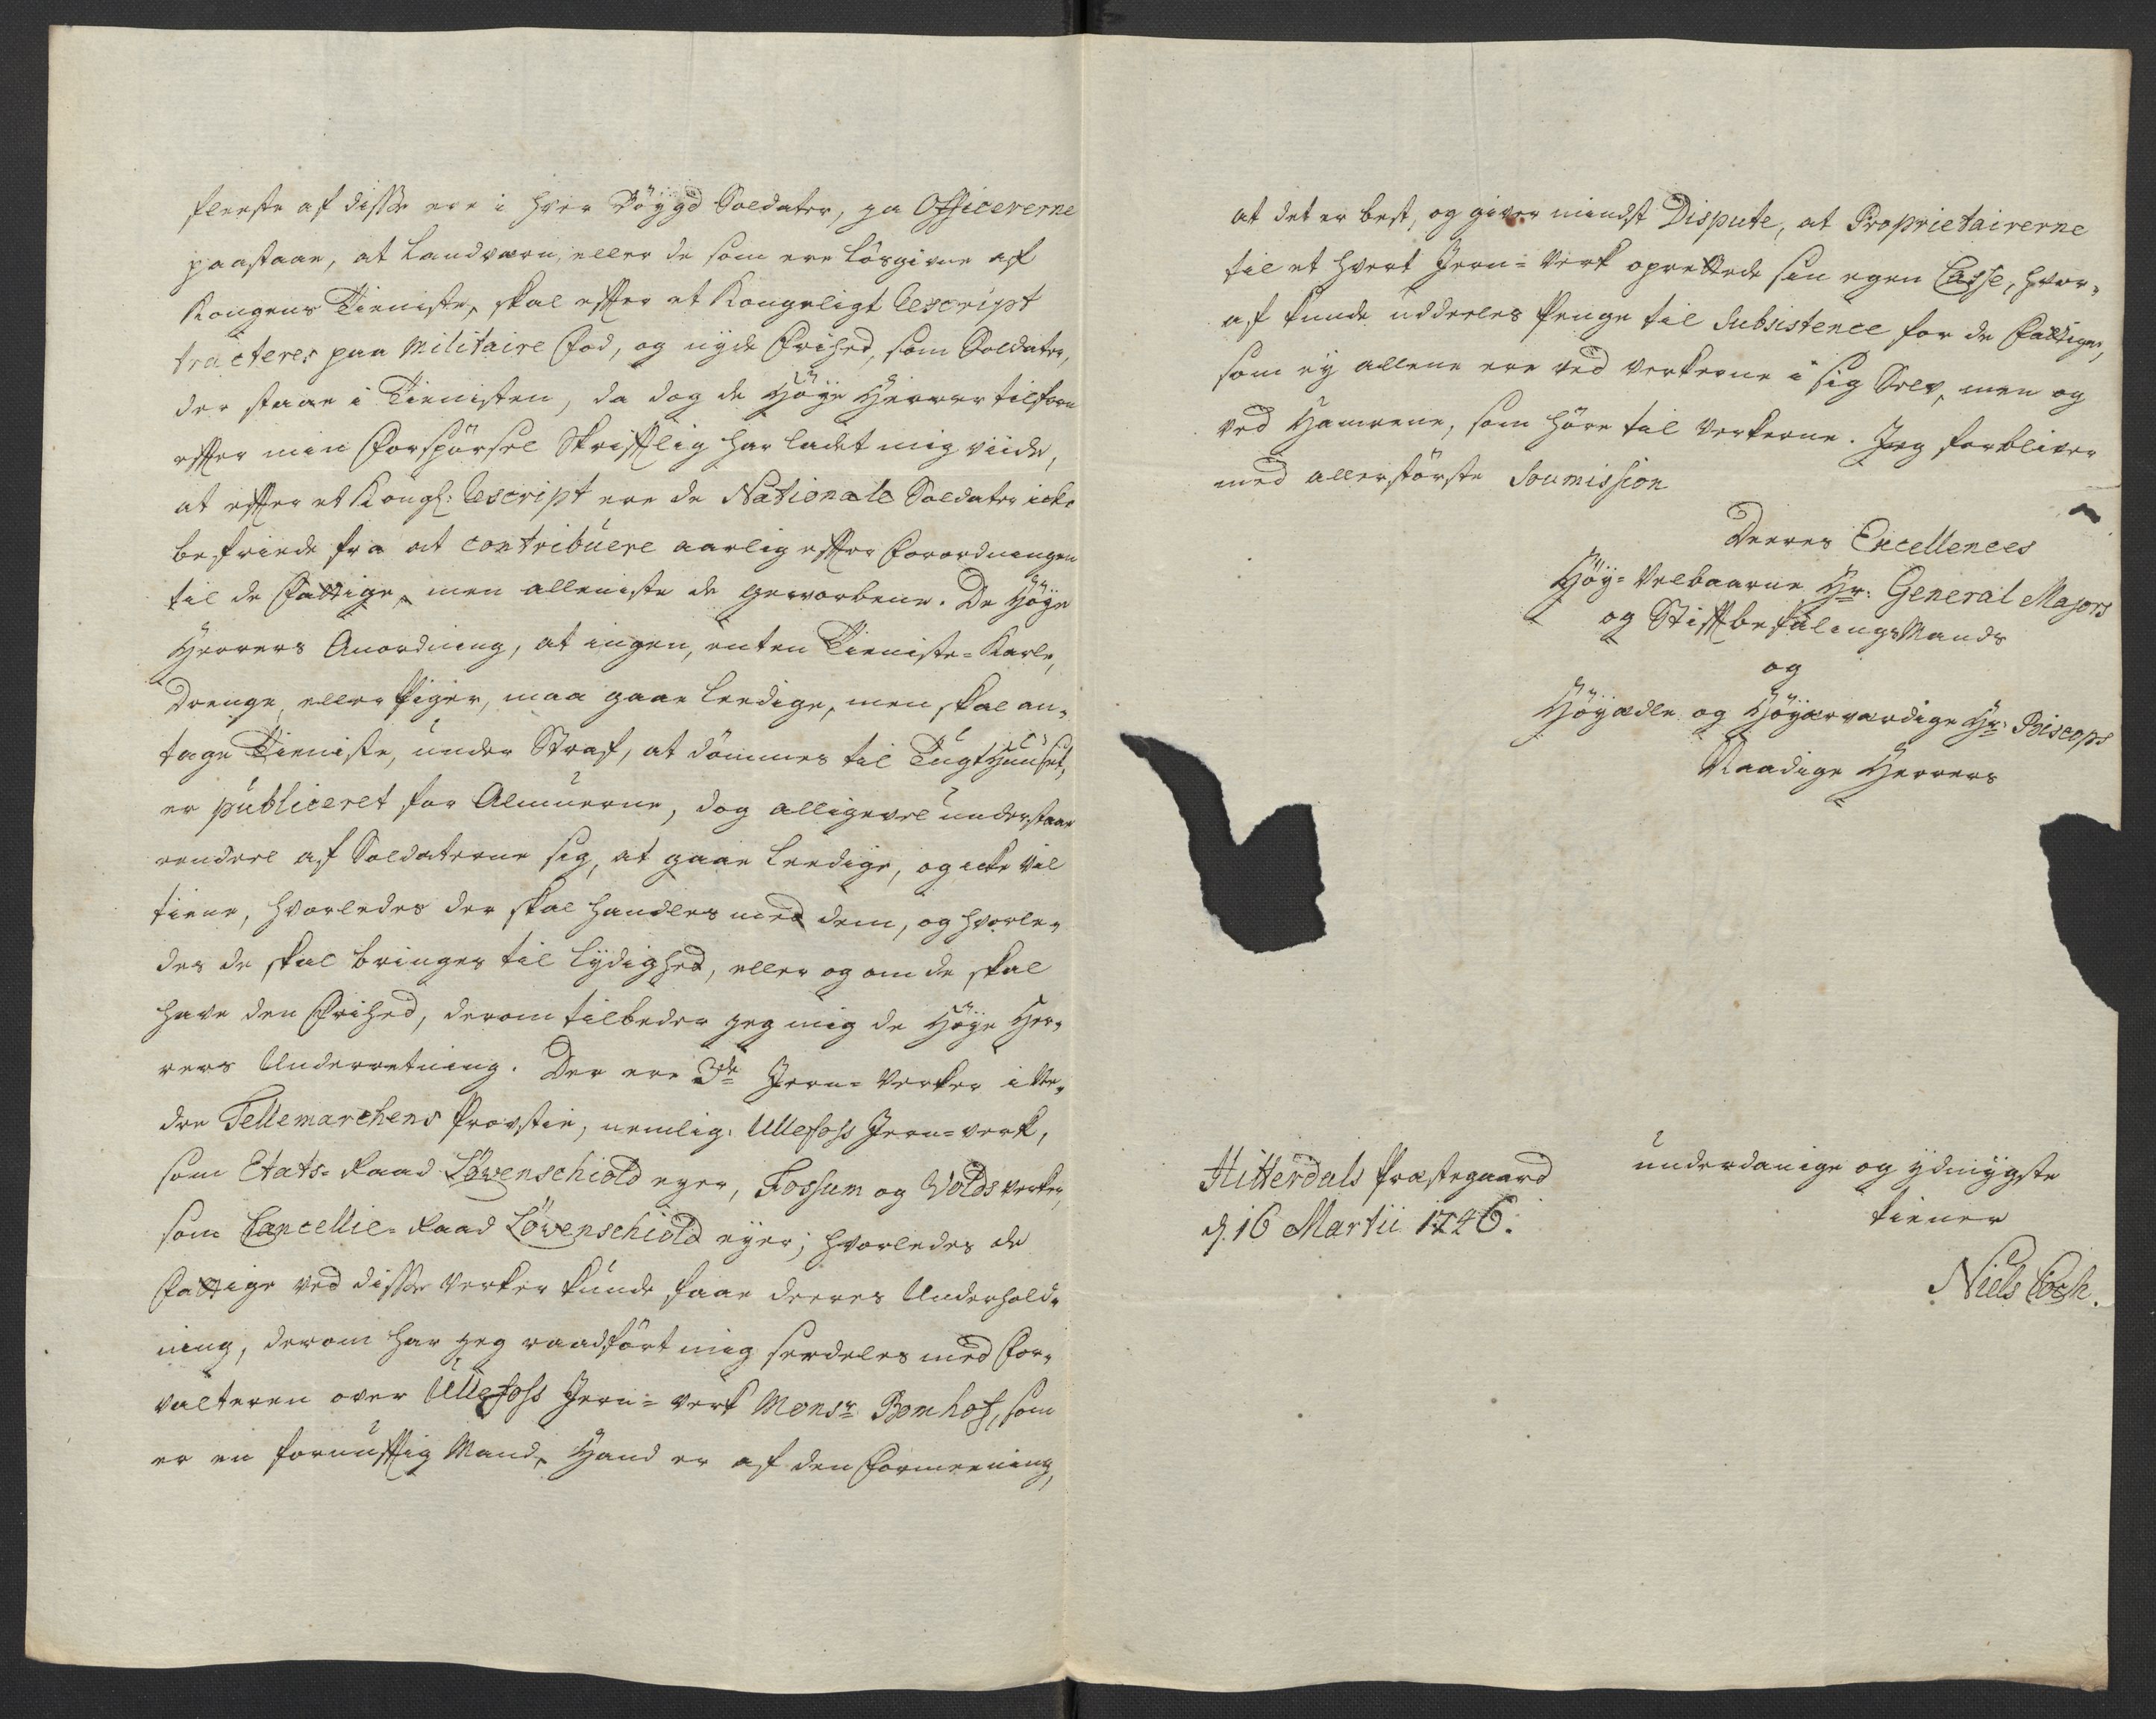 fleeste af disse ere i hver Böÿgd Soldater, ja Officererne
paastaae, at Landværn, eller de som ere lösgivne af
Kongens Tieniste, skal effter et Kongeligt Rescript
tracteres paa Militaire Fod, og nyde Frihed, som Soldater,
der staae i Tienisten, da dog de Höÿe Herrer tilforn
effter min Forspörsel Skrifftlig har ladet mig viide,
at effter et Kongl: Rescript ere de Nationale Soldater icke
befriede fra at contribuere aarlig effter Forordningen
til de Fattige, men alleniste de gevorbene. De Höÿe
Herrers Anordning, at ingen, enten Tieniste-Karle,
Drenge, eller Piger, maa gaae leedige, men skal an-
tage Tieniste, under Straf, at dömmes til Tugthuuset,
er publiceret for Almuerne, dog alligevel understaae
eendeel af Soldaterne sig, at gaae leedige, og icke vil
tiene, hvorledes der skal handles med dem, og hvorle-
des de skal bringes til lydighed, eller og om de skal
have den Frihed, derom tilbeder jeg mig de Höÿe Her-
rers Underretning. Der ere 3de Jern-Verker i Ne-
dre Tellemarchens Provstie, nemlig: Ulefoss Jern-verk,
som Etats-Raad Lövenschiold eyer, Fossum og Volds verker,
som Cancellie-Raad Lövenschiold eÿer; hvorledes de
Fattige ved disse Verker kunde faae deeres Underhold-
ning, derom har jeg raadfört mig særdeles med For-
valteren over Ulefoss Jern-verk Monsr Bomhof, som
er en fornufftig Mand, Hand er af den Formeening,
at det er best, og giver mindst Dispute, at Proprietairerne
til et hvert Jern-Verk oprettede sin egen Casse, hvor-
af kunde uddeeles Penge til Subsistence for de Fattige,
som eÿ allene ere ved Verkerne i sig Selv, men og
ved Hamrene, som höre til Verkerne. Jeg forbliver
med allerstörste Soumission
Deeres Excellences
Höÿ-Velbaarne Hr: General Majors
og Stiftbefalings Mands
og
Höÿædle og Höÿærværdige Hr: Biscops
Naadige Herrers
Hitterdals Præstegaard
d. 16 Martii 1746.
underdanige og ydmÿgste
tiener
Niels Cosh.